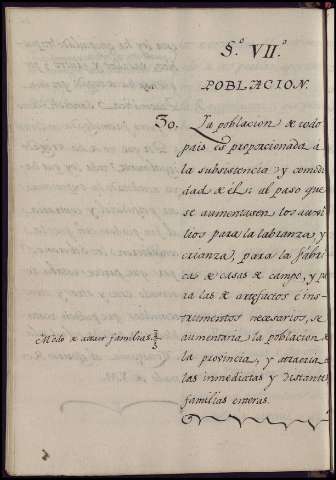 §.º VII.º
POBLACION.
30. La poblacion de todo
pais es proporcionada á
la subsistencia, y comodi
dad de él: al paso que
se aumentasen los auxi
lios para la labranza, y
crianza, para la fabri
ca de casas de campo, y pa
ra las de artefactos é ins
trumentos necesarios, se
aumentaria la poblacion de
la provincia, y atraeria
las inmediatas y distantes
familias enteras.
Modo de atraer familias.